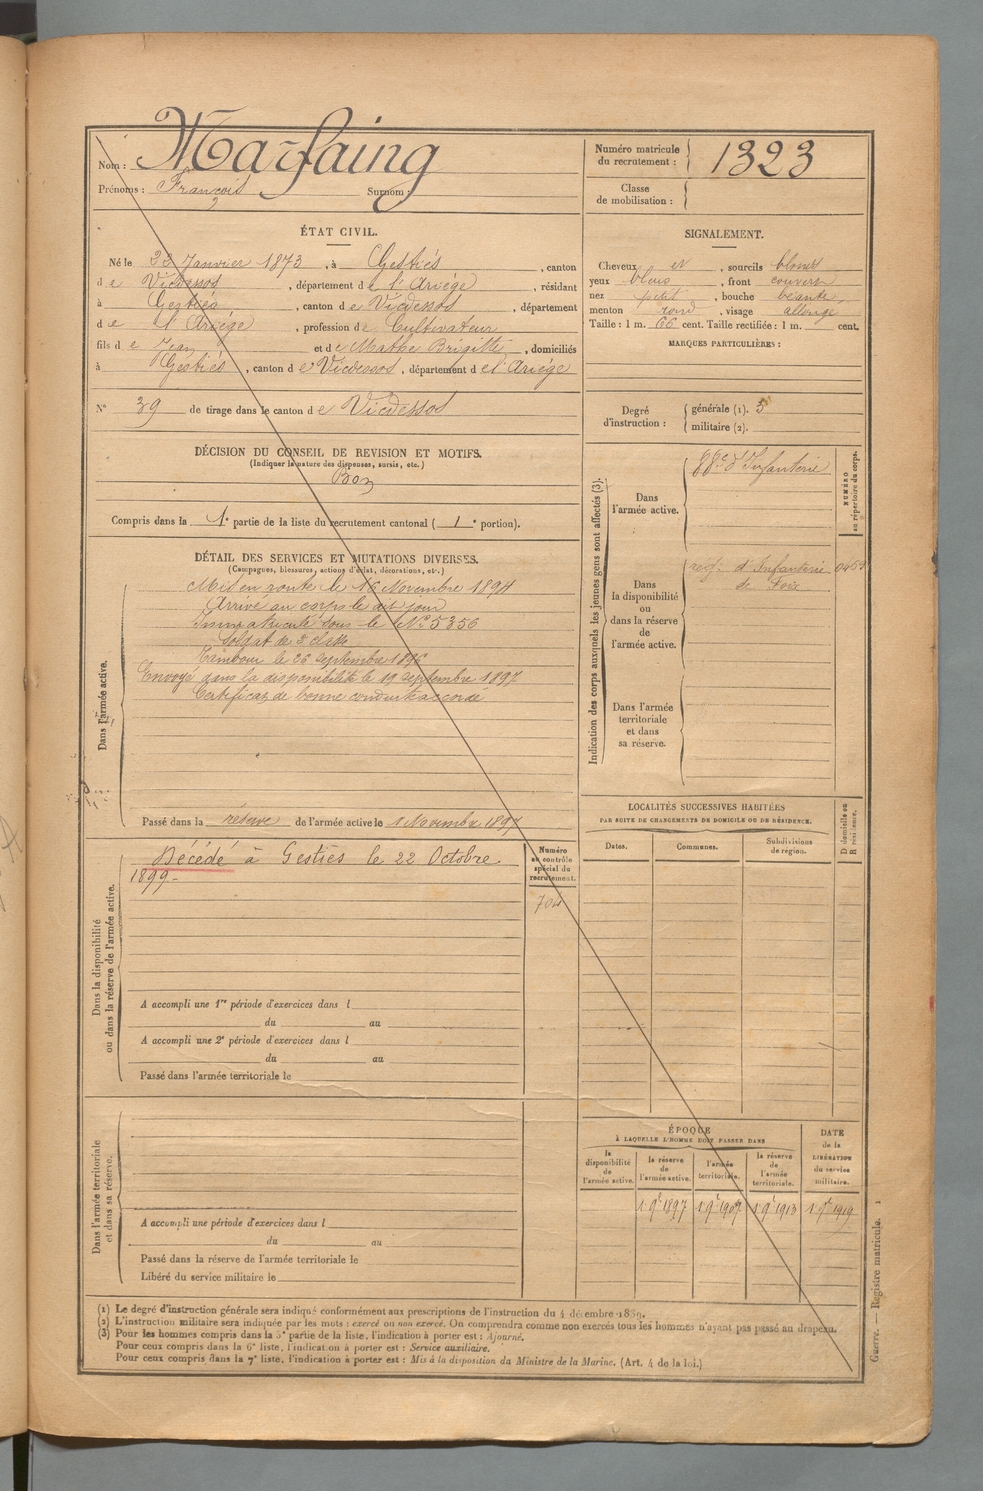 Nom : Marfaing
Prénoms : François Surnom :
Numéro matricule
du recrutement : 1323
Classe
de mobilisation :
ÉTAT CIVIL.
Né le 23 Janvier 1873, à Gestiés, canton
de Vicdessos, département de l'Ariége, résidant
à Gestiés, canton de Vicdessos, département
de l'Ariége, profession de Cultivateur
fils de Jean et de Mathe Brigitte, domiciliés
à Gestiés, canton de Vicdessos, département de l'Ariége
N° 39 de tirage dans le canton de Vicdessos
SIGNALEMENT.
Cheveux et, sourcils blonds
yeux bleus, front couvert
nez petit, bouche béante,
menton rond, visage allongé
Taille : 1 m. 66 cent. Taille rectifiée : 1 m. cent.
MARQUES PARTICULIÈRES :
Degré
d'instruction :
générale (1). 3
militaire (2).
DÉCISION DU CONSEIL DE REVISION ET MOTIFS.
(Indiquer la nature des dispenses, sursis, etc.)
Bon
Compris dans la 1e partie de la liste du recrutement cantonal (1e portion).
DÉTAIL DES SERVICES ET MUTATIONS DIVERSES.
(Campagnes, blessures, actions d'éclat, décorations, etc.)
Dans l'armée active.
Mis en route le 16 Novembre 1894
Arrivé au corps le dit jour
Immatriculé sous le N° 5356
Soldat de 2e classe
Tambour le 26 septembre 1896
Envoyé dans la disponibilité le 19 septembre 1897
Certificat de bonne conduite accordé
Passé dans la réserve de l'armée active le 1 Novembre 1897
Indication des corps auxquels les jeunes gens sont affectés (3).
NUMÉRO
au répertoire du corps.
Dans
l'armée active.
88e d'Infanterie
Dans
la disponibilité
ou
dans la réserve
de
l'armée active.
reg. d'Infanterie
de Foix
Dans l'armée
territoriale
et dans
sa réserve.
Dans la disponibilité
ou dans la réserve de l'armée active.
Décédé à Gestiès le 22 Octobre
1899-
Numéro
au contrôle
spécial du
recrutement.
704
A accompli une 1re période d'exercices dans l
du au
A accompli une 2e période d'exercices dans l
du au
Passé dans l'armée territoriale le
LOCALITÉS SUCCESSIVES HABITÉES
PAR SUITE DE CHANGEMENTS DE DOMICILE OU DE RÉSIDENCE.
Dates. Communes. Subdivisions
de région.
D domicile ou
R résidence.
Dans l'armée territoriale
et dans sa réserve.
A accompli une période d'exercices dans l
du au
Passé dans la réserve de l'armée territoriale le
Libéré du service militaire le
ÉPOQUE
À LAQUELLE L'HOMME DOIT PASSER DANS
la
disponibilité
de
l'armée active.
la réserve
de
l'armée active.
l'armée
territoriale.
la réserve
de
l'armée
territoriale.
DATE
de la
LIBÉRATION
du service
militaire.
1 9r 1897 1 9r 1907 1 9r 1913 1 9r 1919
(1) Le degré d'instruction générale sera indiqué conformément aux prescriptions de l'instruction du 4 décembre 1889.
(2) L'instruction militaire sera indiquée par les mots : exercé ou non exercé. On comprendra comme non exercés tous les hommes n'ayant pas passé au drapeau.
(3) Pour les hommes compris dans la 5e partie de la liste, l'indication à porter est : Ajourné.
Pour ceux compris dans la 6e liste, l'indication à porter est : Service auxiliaire.
Pour ceux compris dans la 7e liste, l'indication à porter est : Mis à la disposition du Ministre de la Marine. (Art. 4 de la loi.)
Guerre. — Registre matricule. 1